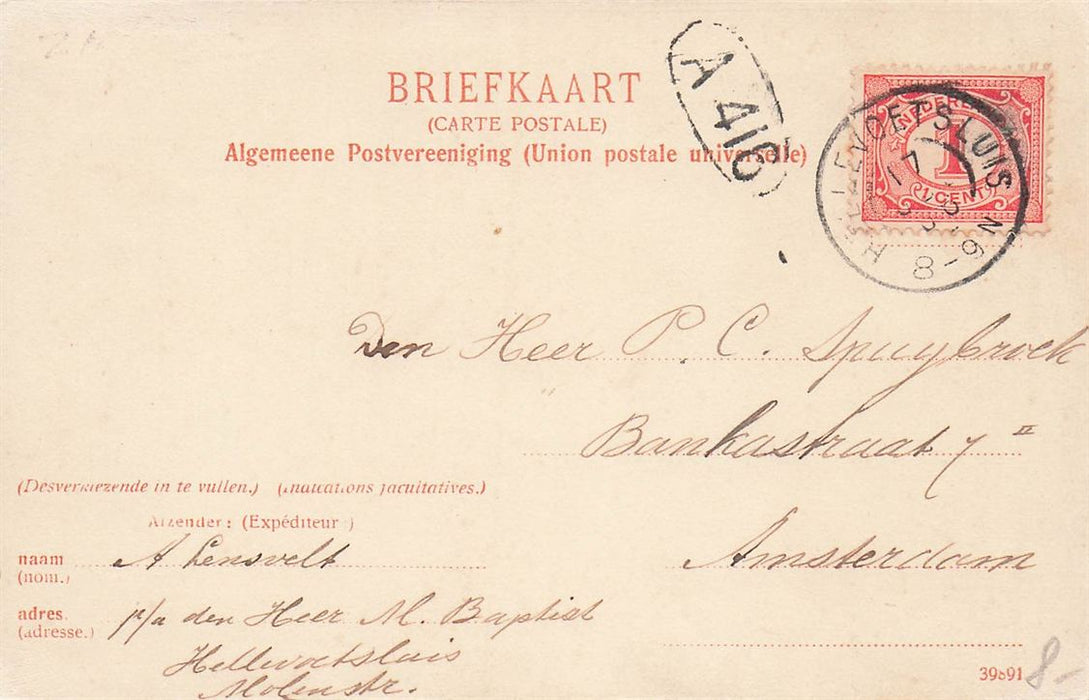 BRIEFKAART
(CARTE POSTALE)
Algemeene Postvereeniging (Union postale universelle)
A 416
NEDERL
1
1 CENT
HELLEVOETSLUIS
17
8-9 N
Den Heer P. C. Spuybroek
Bankastraat 7 II
Amsterdam
(Desverkiezende in te vullen.) (Indications facultatives.)
Afzender: (Expéditeur)
naam A Lensvelt
(nom.)
adres. p/a den Heer M. Baptist
(adresse.)
Hellevoetsluis
Molenstr.
39891
8-